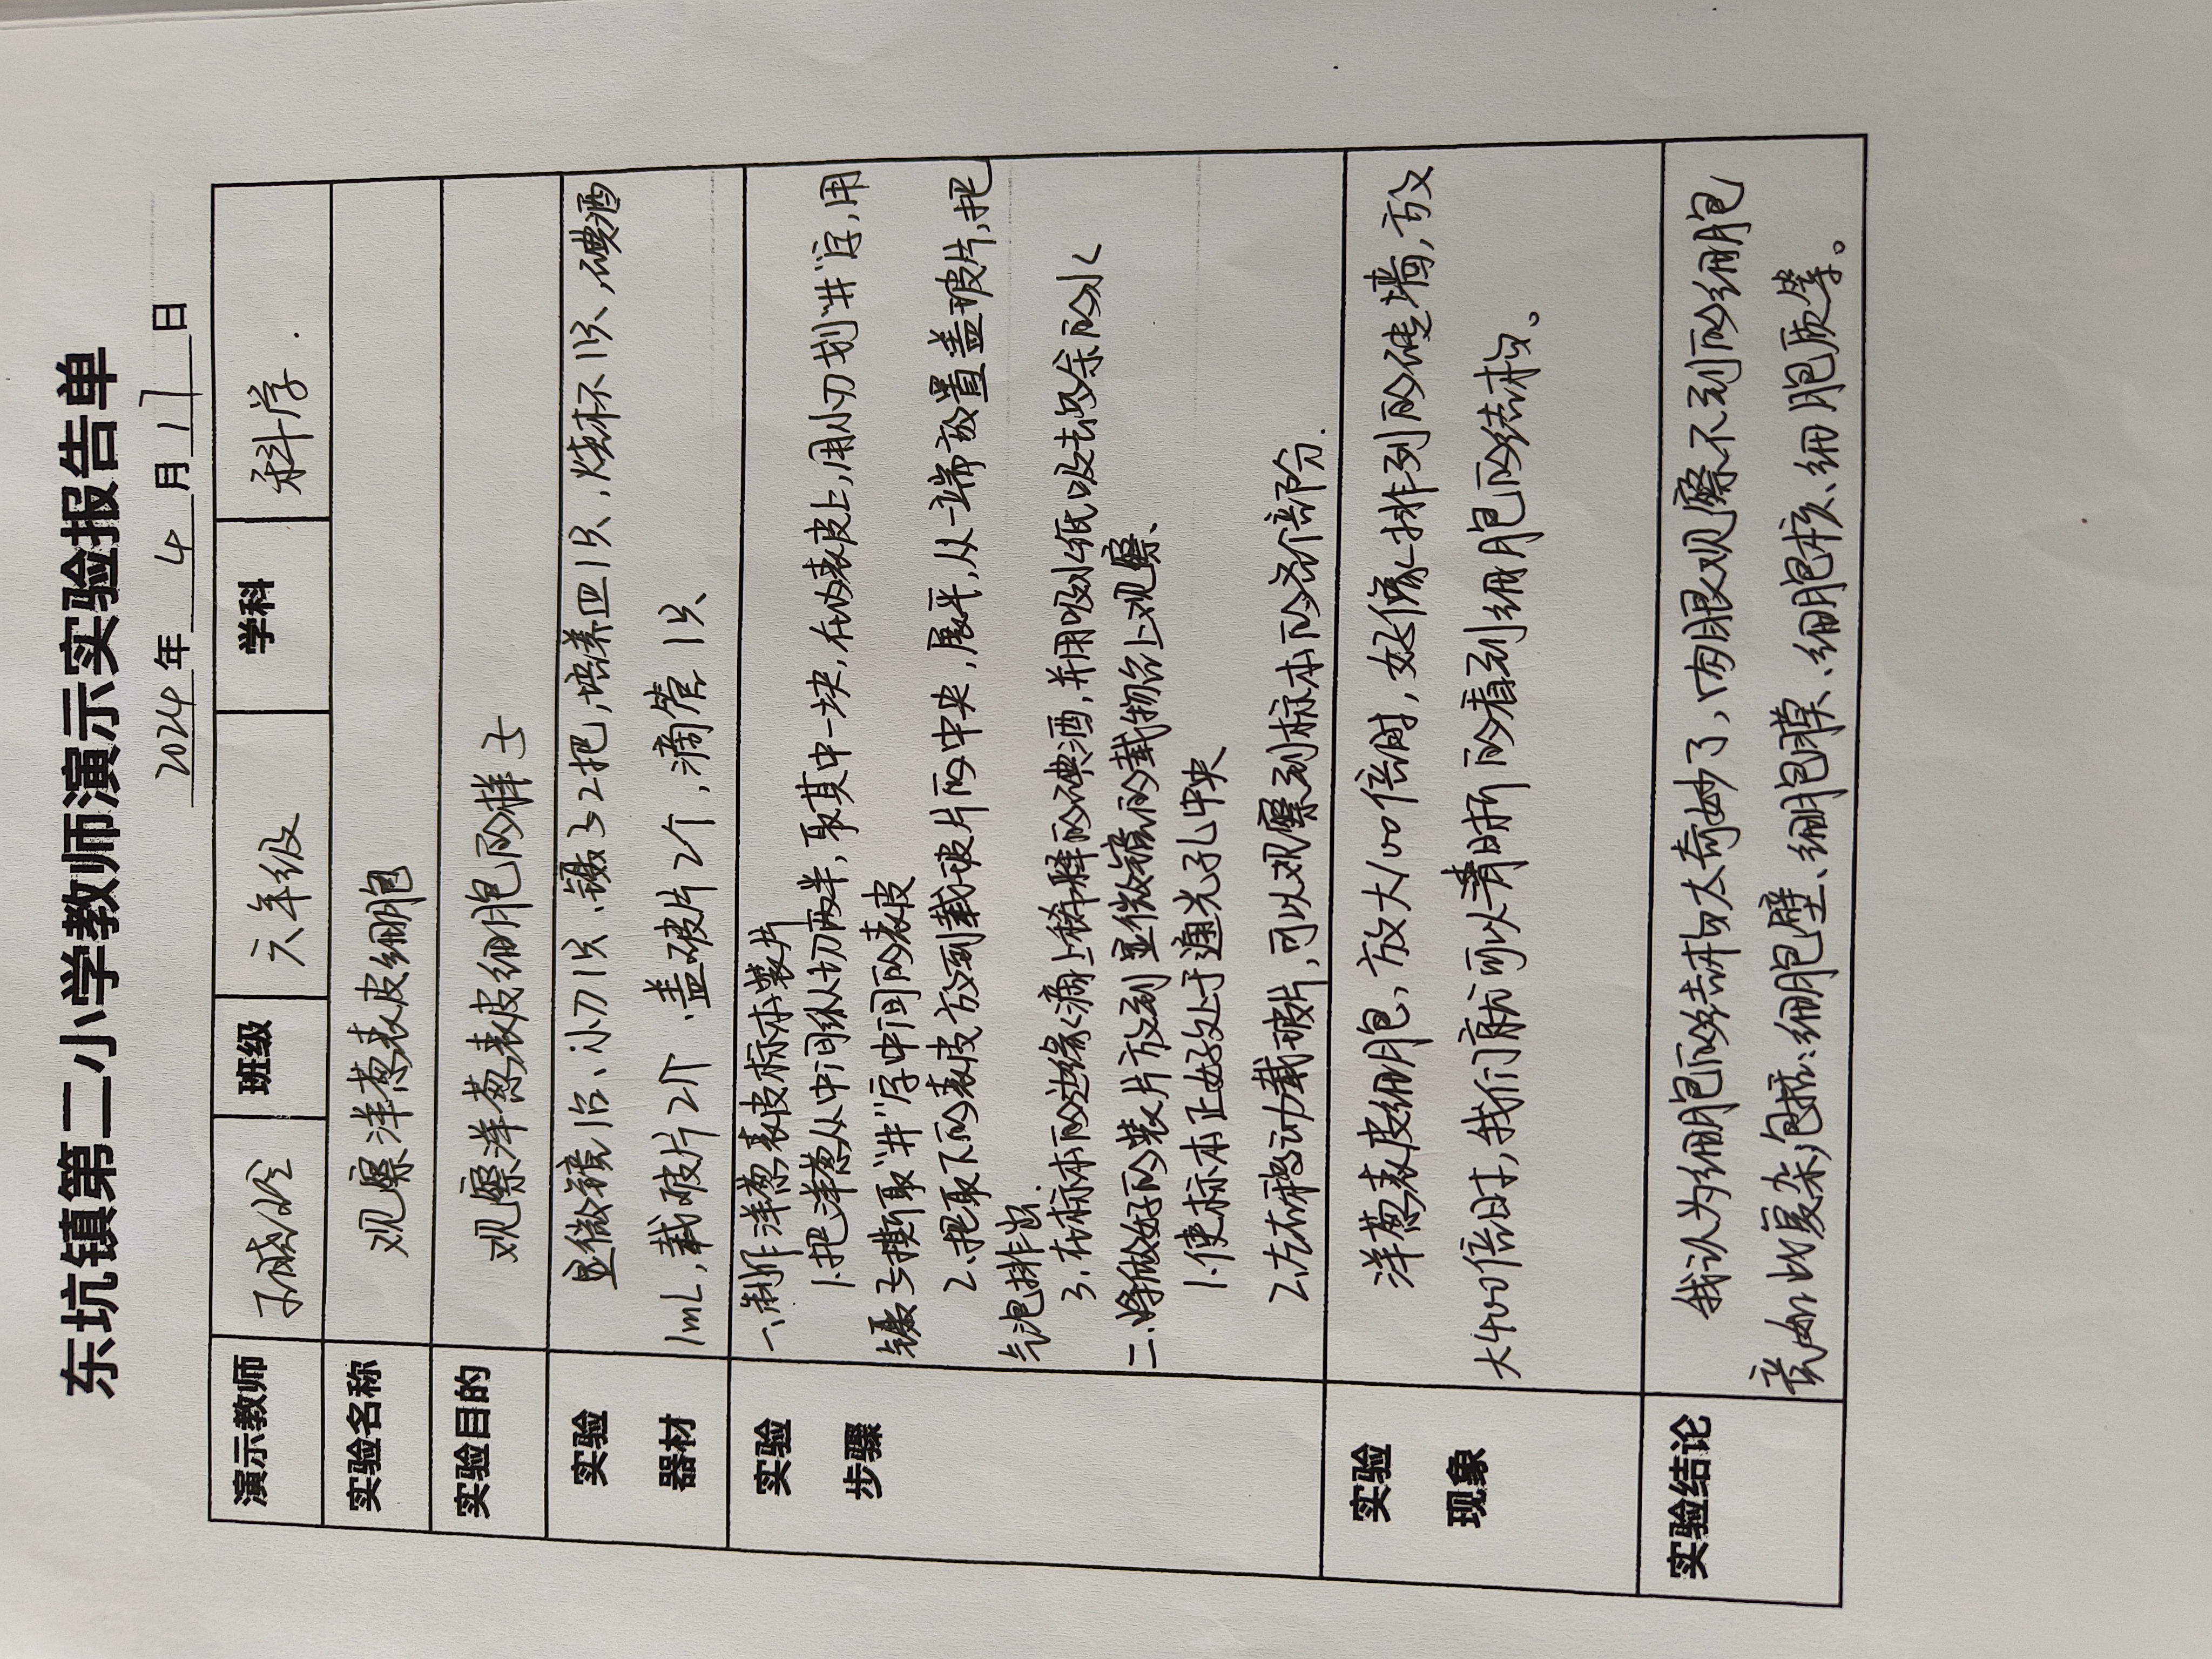 东坑镇第二小学教师演示实验报告单
2024年4月17日
演示教师 班级 六年级 学科 科学.
实验名称 观察洋葱表皮细胞
实验目的 观察洋葱表皮细胞的样子
实验 显微镜1台、小刀1只、镊子2把,培养皿1只,烧杯1只,碘酒
器材 1mL,载玻片2个 .盖玻片2个,滴管1只
实验 一.制作洋葱表皮标本装片
1.把洋葱从中间纵切两半,取其中一块,在内表皮上,用小刀划"井"字,用
步骤 镊子撕取"井"字中间的表皮
2.把取下的表皮放到载玻片的中央,展平,从一端放置盖玻片,把
气泡排出.
3.在标本的边缘滴上稀释的碘酒,并用吸水纸吸去多余的水
二.将做好的装片放到显微镜的载物台上观察、
1.使标本正好处于通光孔中央
2.左右移动载玻片,可以观察到标本的各个部分.
实验 洋葱表皮细胞,放大100倍时,好像排列的砖墙,放
现象 大400倍时,我们就可以清晰的看到细胞的结构。
实验结论 我认为细胞的结构太奇妙了,肉眼观察不到的细胞
竟如此复杂,包括:细胞壁、细胞膜、细胞核、细胞质等。